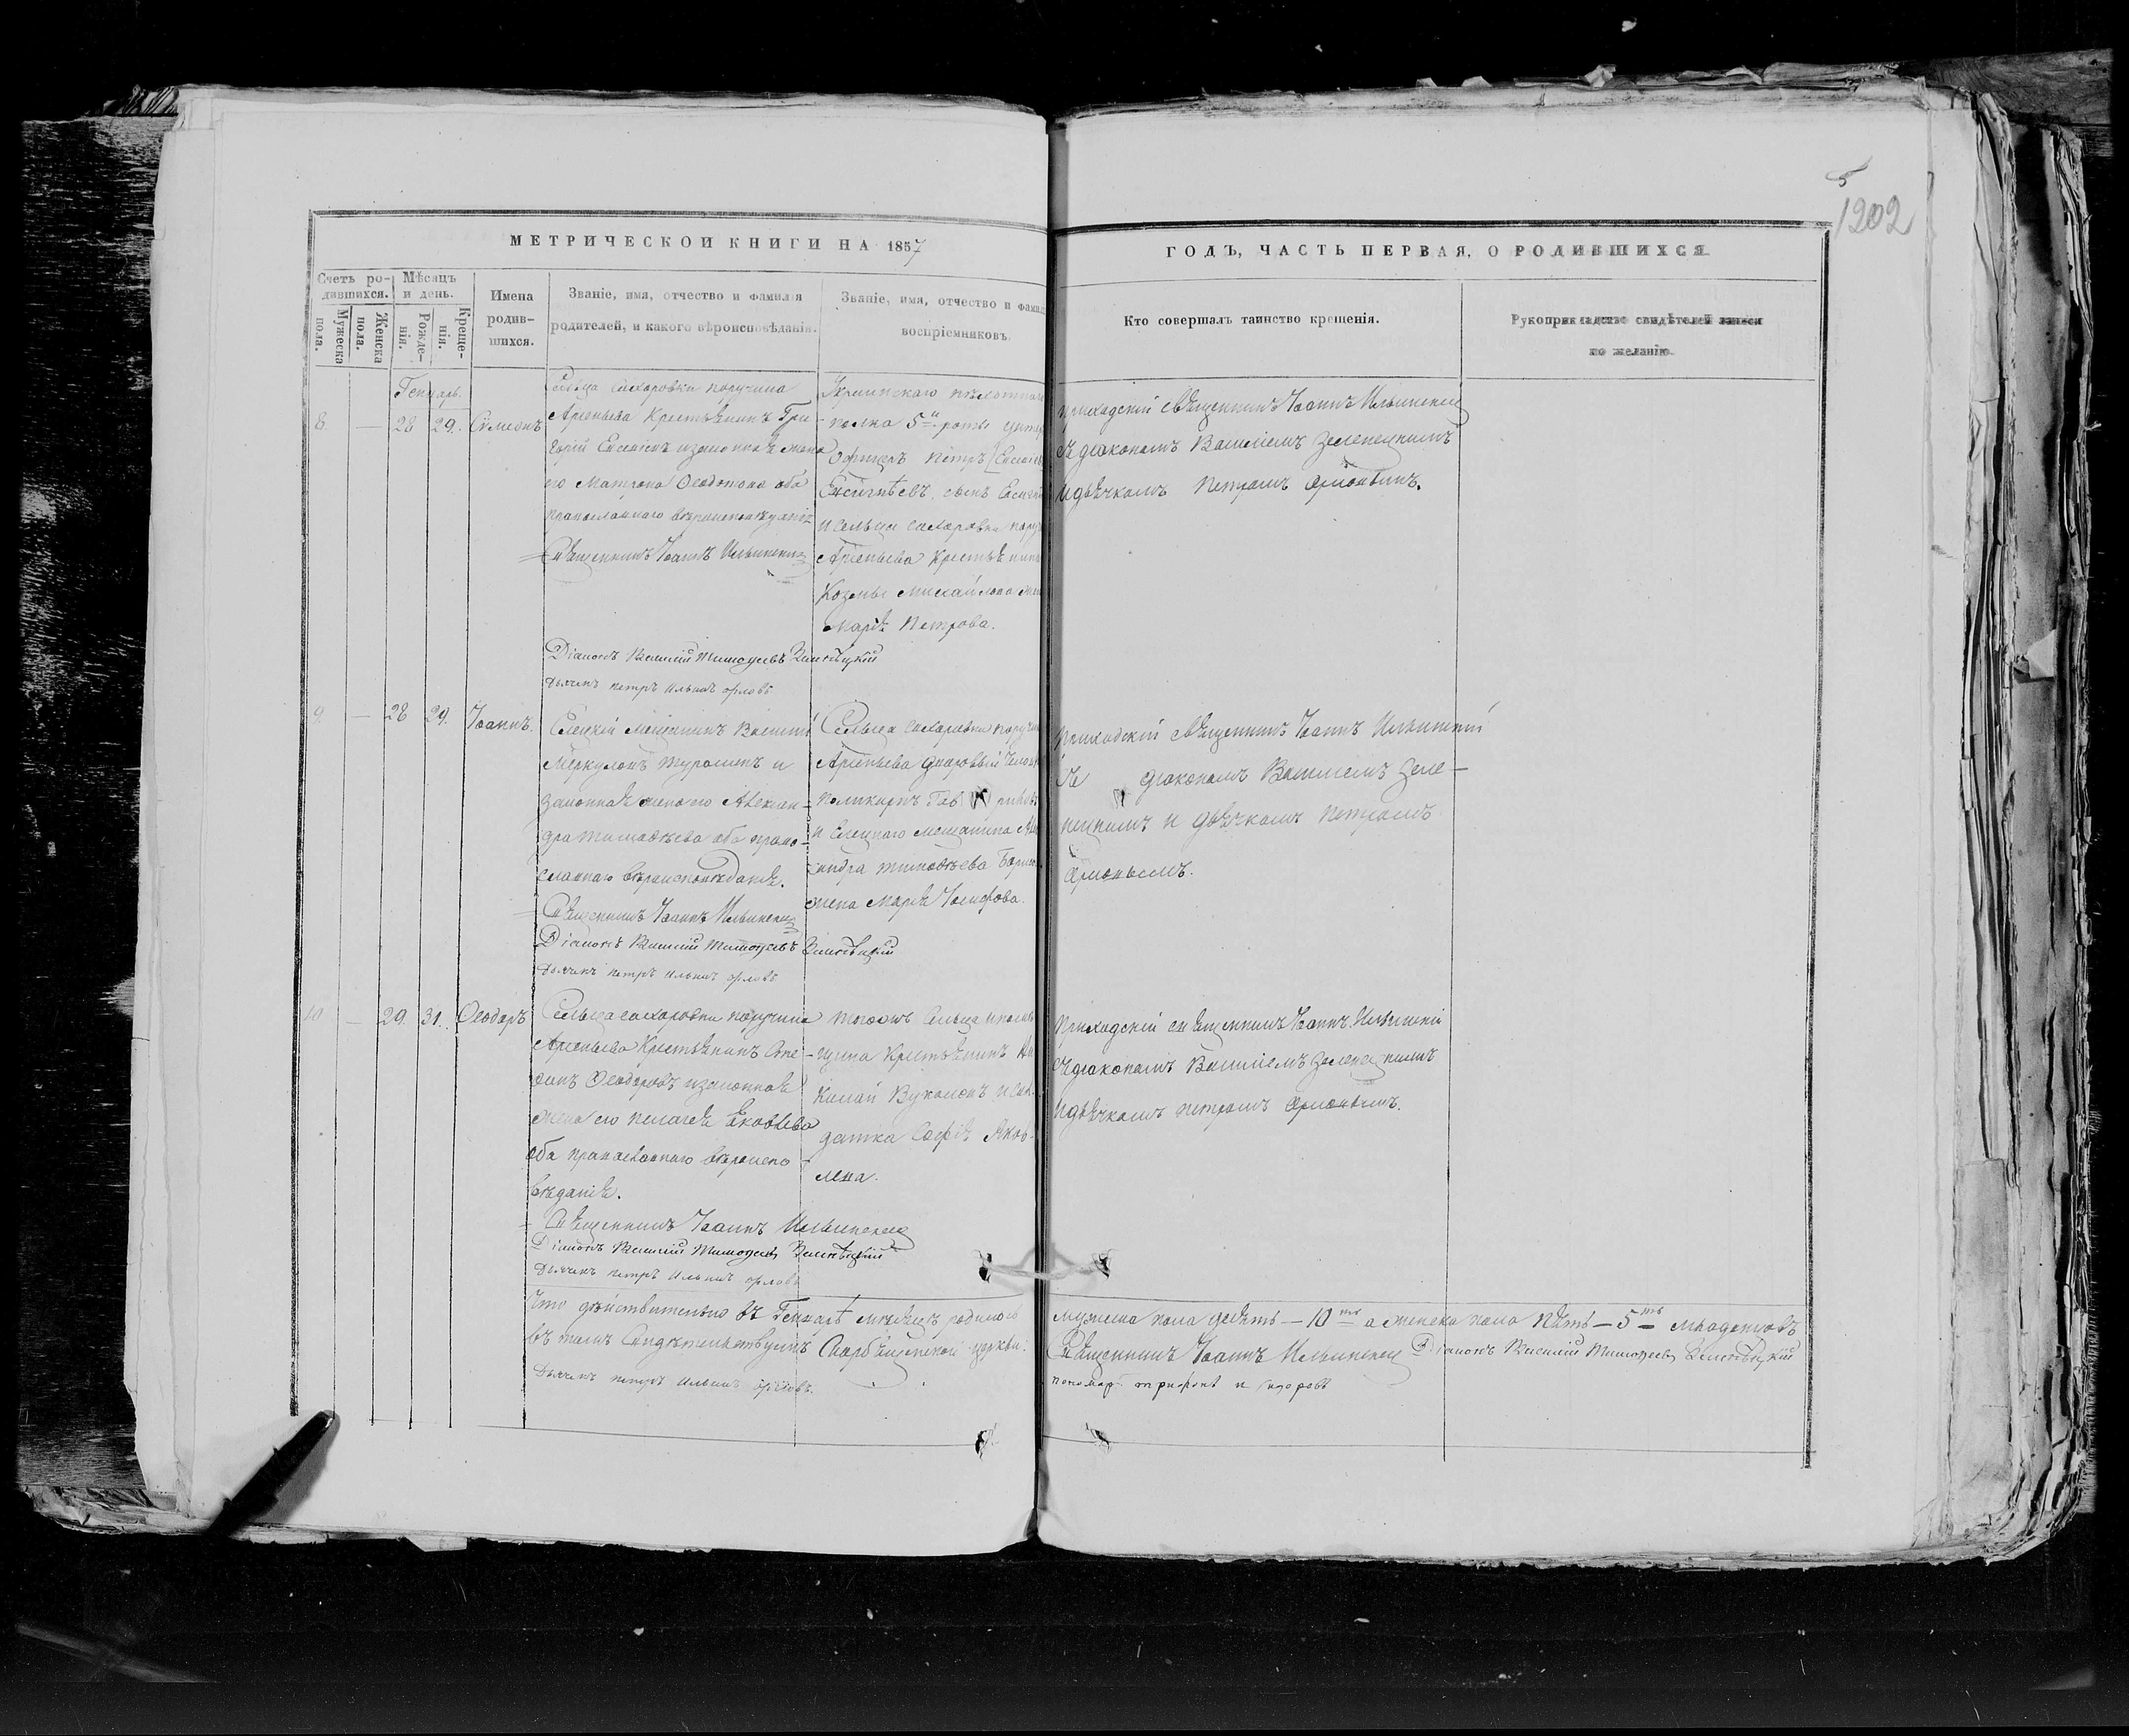 5
1202
МЕТРИЧЕСКОЙ КНИГИ НА 1857
ГОДЪ, ЧАСТЬ ПЕРВАЯ, О РОДИВШИХСЯ.
Счетъ ро-
дившихся.
Мужеска
пола.
Женска
пола.
Мѣсяцъ
и день.
Рожде-
нія.
Креще-
нія.
Имена
родив-
шихся.
Званіе, имя, отчество и фамилія
родителей, и какого вѣроисповѣданія.
Званіе, имя, отчество и фамил
воспріемниковъ.
Кто совершалъ таинство крещенія.
Рукоприкладство свидѣтелей записи
по желанію.
Генварь.
8. — 28 29. Сѵмеонъ
Сельца Сахаровки поручика
Арсеньева Крестьянинъ Гри
горій и законная жена
его Матрона Ѳеодотова оба
православнаго вѣроисповѣданія
Священникъ Іоаннъ Ильинскій
Діаконъ Василій Тимоѳеевъ Зеленѣцкій
Дьячекъ петръ Ильинъ орловъ
полка 5й роты унтер
Офицеръ Петръ
и Сельца Сахаровки пору
Арсеньева Крестьянина
Козмы Михайлова же
Марія Петрова.
Приходскій священникъ Іоаннъ Ильинскій
съ діакономъ Василіемъ Зеленецкимъ
и дьячкомъ Петромъ Орловымъ.
9. — 28 29. Іоаннъ.
Елецкій Мещанинъ Василій
Меркуловъ и
законная жена его Алексан-
дра Тимоѳеева оба право-
славнаго вѣроисповѣданія.
Священникъ Іоаннъ Ильинскій
Діаконъ Василій Тимоѳеевъ Зеленѣцкій
Дьячекъ петръ Ильинъ орловъ
Сельца Сахаровки поручи
Арсеньева дворовый Челов
Поликарпъ Гав риловъ
и Елецкаго мещанина Але
ксандра Тимоѳеева
жена Марія Іосифова.
Приходскій священникъ Іоаннъ Ильинскій
съ діакономъ Василіемъ Зеле-
нецкимъ и дьячкомъ Петромъ
Орловымъ.
10 — 29. 31. Ѳеодоръ
Сельца Сахаровки поручика
Арсеньева Крестьянинъ Сте-
фанъ Ѳеодоровъ и законная
жена его Пелагея Яковлева
оба православнаго вѣроиспо
вѣданія.
Священникъ Іоаннъ Ильинскій
Діаконъ Василій Тимоѳеевъ Зеленѣцкій
Дьячекъ петръ Ильинъ орловъ
тогожъ Сельца и помѣ
щика Крестьянинъ Ни
колай Вуколовъ и сол-
датка Софія Яков-
лева.
Приходскій священникъ Іоаннъ Ильинскій
съ діакономъ Василіемъ Зеленецкимъ
и дьячкомъ Петромъ Орловымъ.
Что дѣйствительно въ Генварѣ мѣсяцѣ родилось
мужеска пола десять — 10ть а женска пола пять — 5ть младенцовъ
въ томъ Свидѣтельствуемъ церкви:
Священникъ Іоаннъ Ильинскій Діаконъ Василій Тимоѳеевъ Зеленѣцкій
Дьячекъ петръ Ильинъ орловъ.
пономарь трифонъ